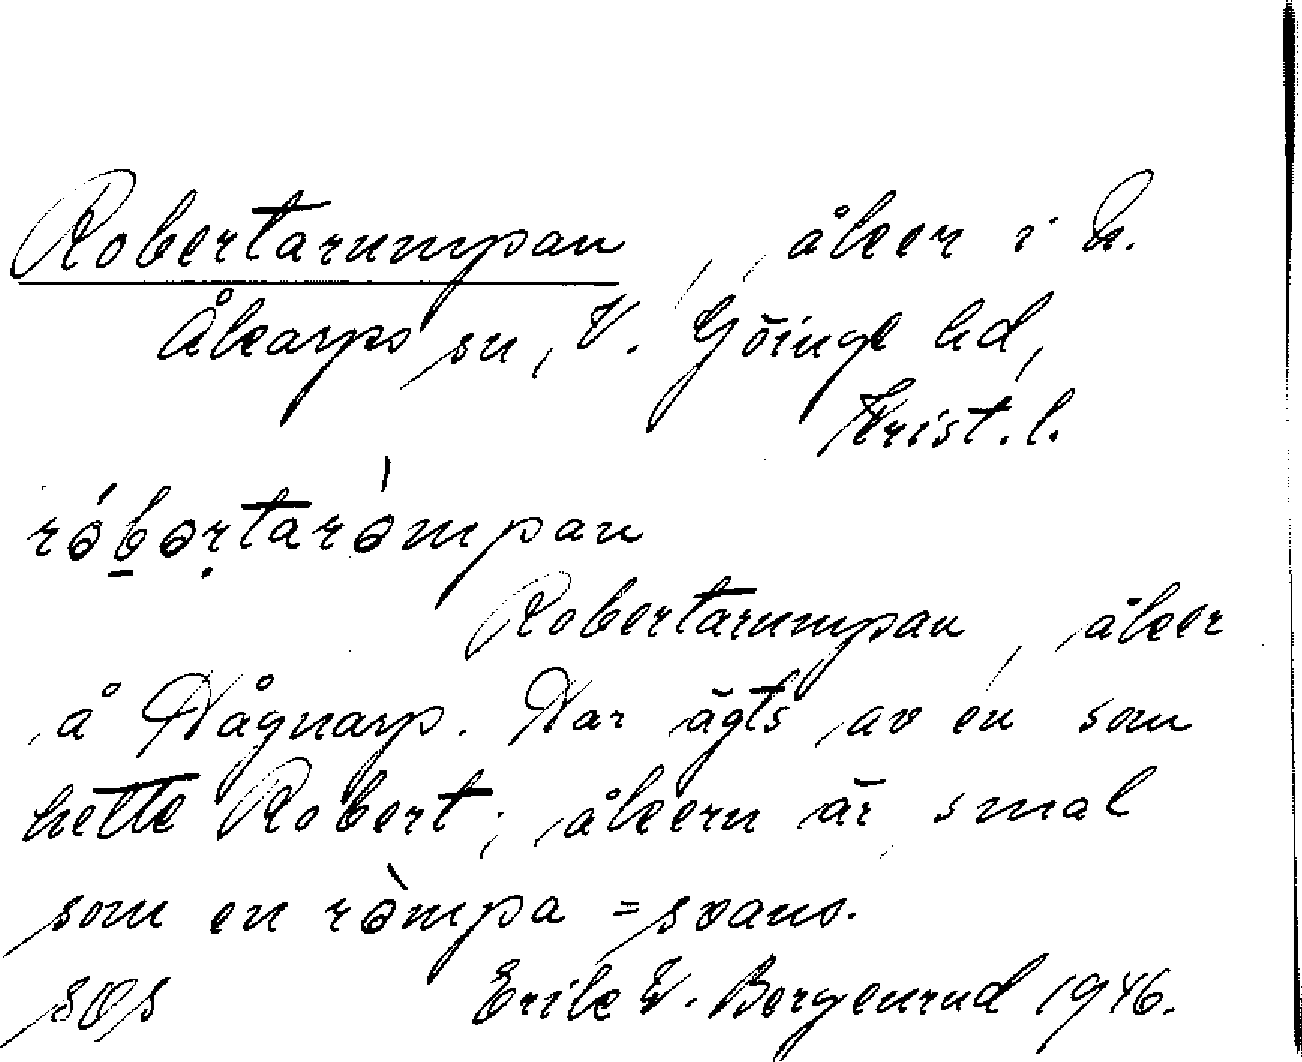 Robertarumpan, åker i N.
Åkarps sn, V. Göinge hd,
Krist. l.
róbərtaròmpan
Robertarumpan, åker
å Någnarp. Har ägts av en som
hette Robert; åkern är smal
som en ròmpa = svans.
Erik W. Bergenrud 1946.